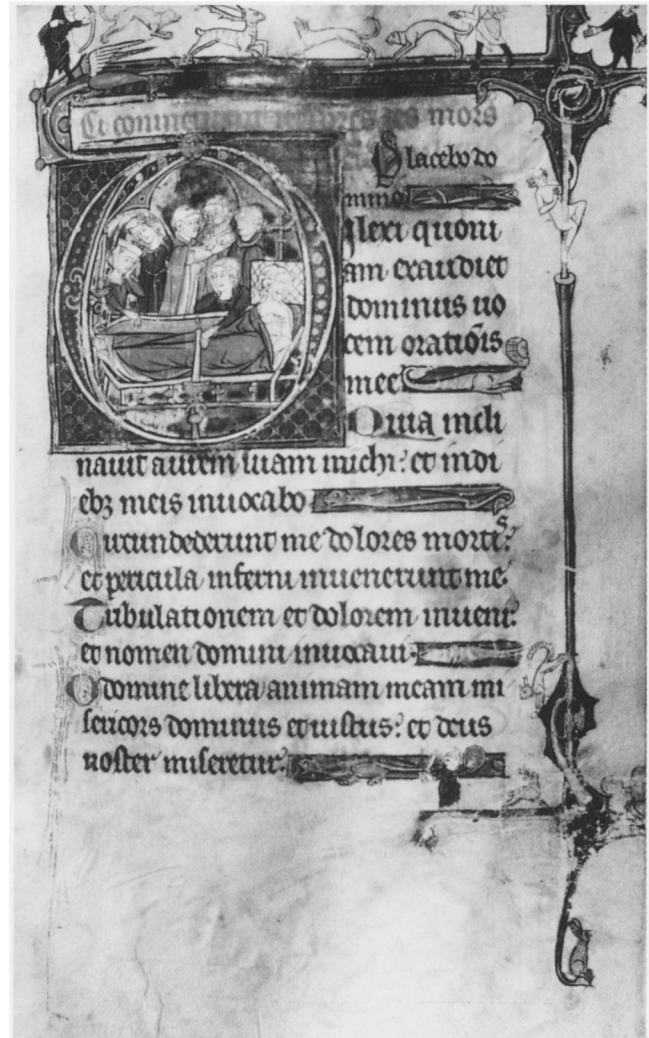 Ci mors
Placebo do
mino
Dilexi quoni
am exaudiet
dominus uo
cem oratiõis
mee
Quia incli
nauit aurem suam michi: et in di
ebꝫ meis inuocabo
Circundederunt me dolores mortis:
et pericula inferni inuenerunt me.
Tribulationem et dolorem inueni:
et nomen domini inuocaui.
O domine libera animam meam mi
sericors dominus et iustus: et deus
noster miseretur.